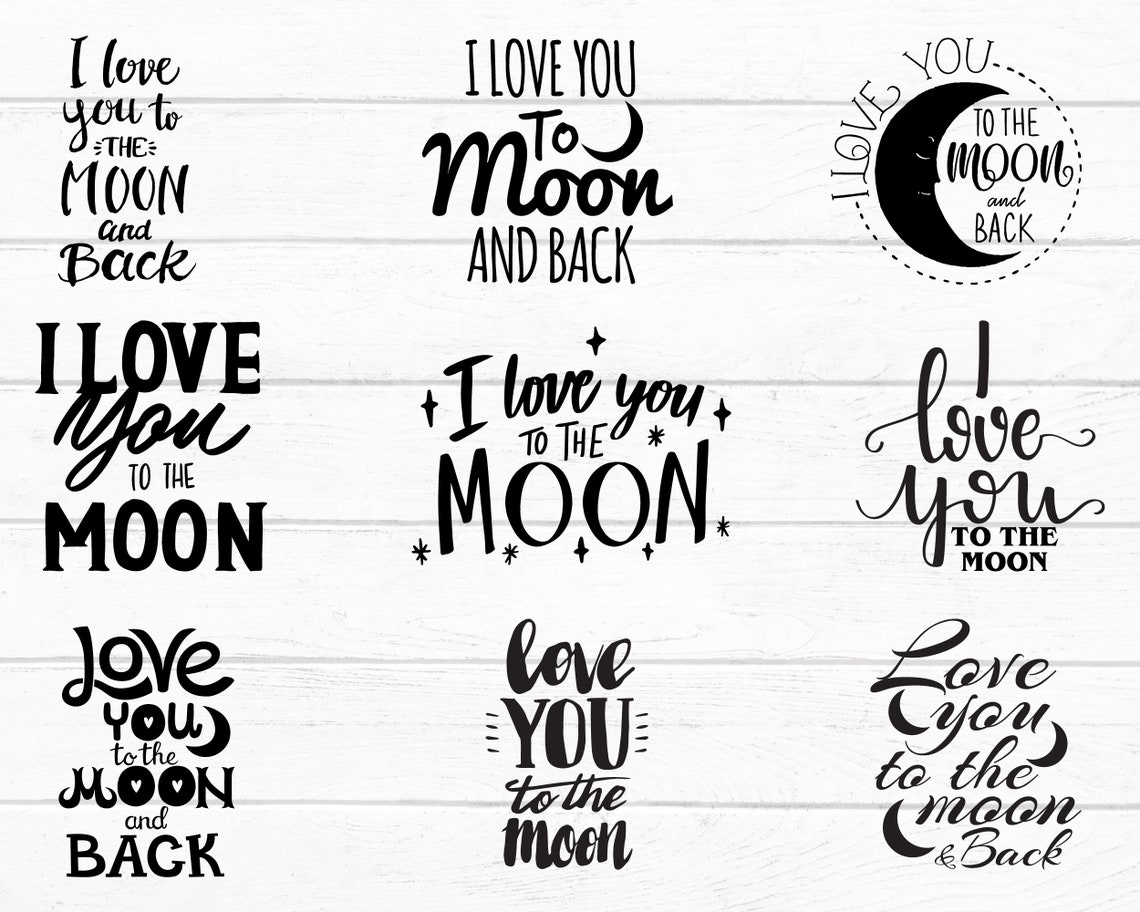 I love
you to
THE
MOON
and
Back
I LOVE YOU
To
Moon
AND BACK
I LOVE YOU
TO THE
MOON
and
BACK
I LOVE
You
TO THE
MOON
I love you
TO THE
MOON
I
love
you
TO THE
MOON
Love
YOU
to the
MOON
and
BACK
love
YOU
to the
moon
Love
you
to the
moon
& Back